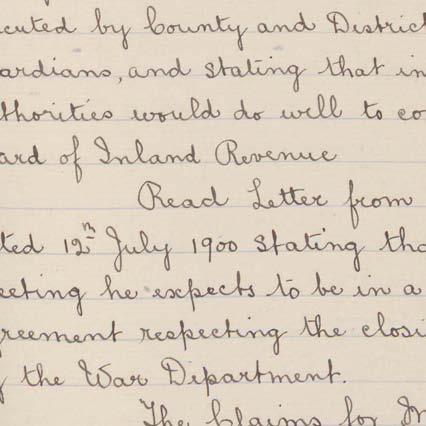 cuted by County and District
ardians, and stating that in
thorities would do well to co
ard of Inland Revenue
Read Letter from
ted 12th July 1900 stating tha
eeting he expects to be in a
greement respecting the closi
the War Department.
The Claims for